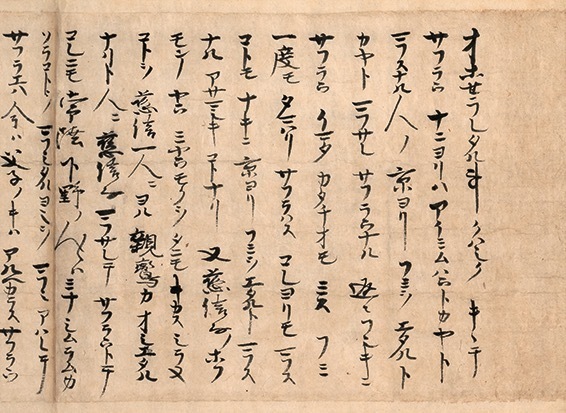 オホセラレタル事 クハシク キヽテ
サフラフ ナニヨリハ アイミムハウトカヤト
マフスナル人ノ 京ヨリ フミヲ エタルト
カヤト マフサレ サフラフナル 返々フシキニ
サフラフ イマタ カタチオモ ミス フミ
一度モ タマハリ サフラハス コレヨリモ マフス
コトモ ナキニ 京ヨリ フミヲ エタルト マフス
ナル アサマシキ コトナリ 又慈信房ノ ホフ
モンノ ヤウ ミヤウモクヲ タニモ キカス シラヌ
コトヲ 慈信一人ニ ヨル 親鸞カ オシエタル
ナリト 人ニ 慈信房 マフサレテ サフラフトテ
コレニモ 常陸下野ノ人々ハ ミナ シムラムカ
ソラコトヲ マフシタルヨシヲ マフシアハレテ
サフラエハ 今ハ父子ノキハ アルヘカラス サフラフ